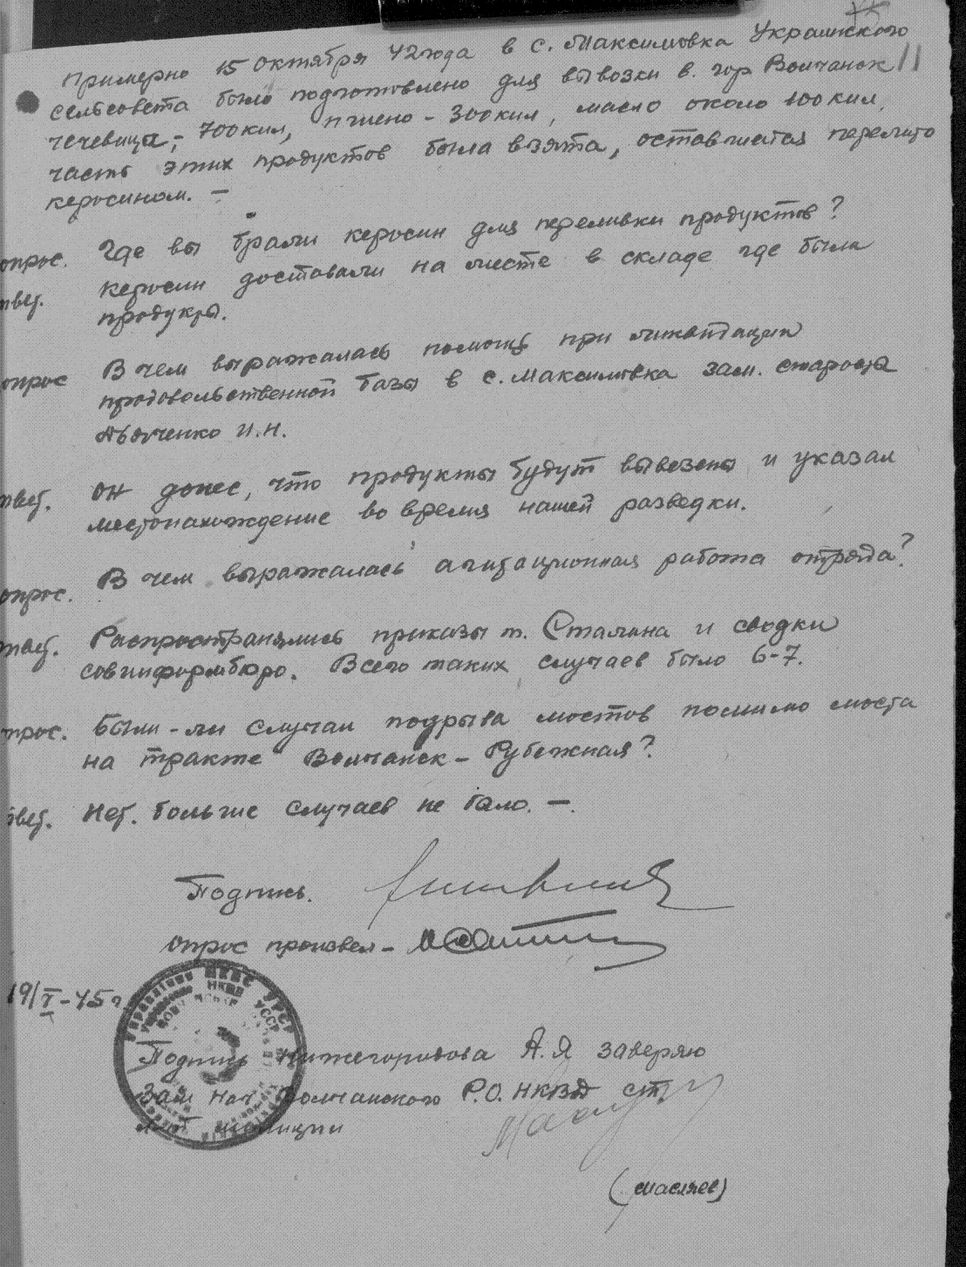 11
Примерно 15 октября 42 года в с. Максимовка Украинского
сельсовета было подготовлено для вывозки в гор Волчанск
чечевицы - 700 кил, пшено - 300 кил, масло около 100 кил,
часть этих продуктов была взята, оставшиеся перелито
керосином. -
опрос. Где вы брали керосин для переливки продуктов?
твет. Керосин доставали на месте в складе где были
продукты.
опрос В чем выражалась помощь при ликвидации
продовольственной базы в с. Максимовка зам. старосты
И.Н.
твет. Он донес, что продукты будут вывезены и указал
местонахождение во время нашей разведки.
опрос. В чем выражалась агитационная работа отряда?
твет. Распространялись приказы т. Сталина и сводки
совинформбюро. Всего таких случаев было 6-7.
прос. Были-ли случаи подрыва мостов помимо моста
на тракте Волчанск - Рубежная?
твет. Нет. больше случаев не было. -
Подпись.
Опрос произвел -
19/I-45 г.
Управління НКВС УРСР
Подпись Нижегородова А.Я заверяю
Зам Нач Волчанского Р.О. НКВД ст.
лит милиции
(Масляев)